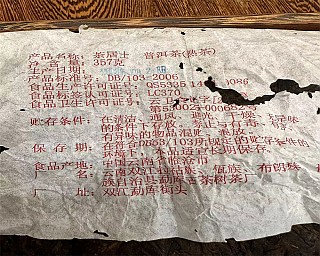 产品名称：茶居士 普洱茶（熟茶）
净含量：357克
生产日期：
产品标准号：DB/103-2006
食品生产许可证号：QS5335 1 0086
食品标签认可证号：LC370
食品卫生许可证号：云卫食证字
第530027000682号
贮存条件：在清洁、通风、避光、干燥、无异味
的条件下存放，禁止与有毒、有害
有异味的物品混贮、混放。
保存期：在符合DB53/103规定的贮存条件的
环境下，本品适宜长期保存。
食品产地：中国云南省临沧市
名：云南双江拉祜族 佤族、布朗族
族自治县勐库 茶树茶厂
厂址：双江勐库街头